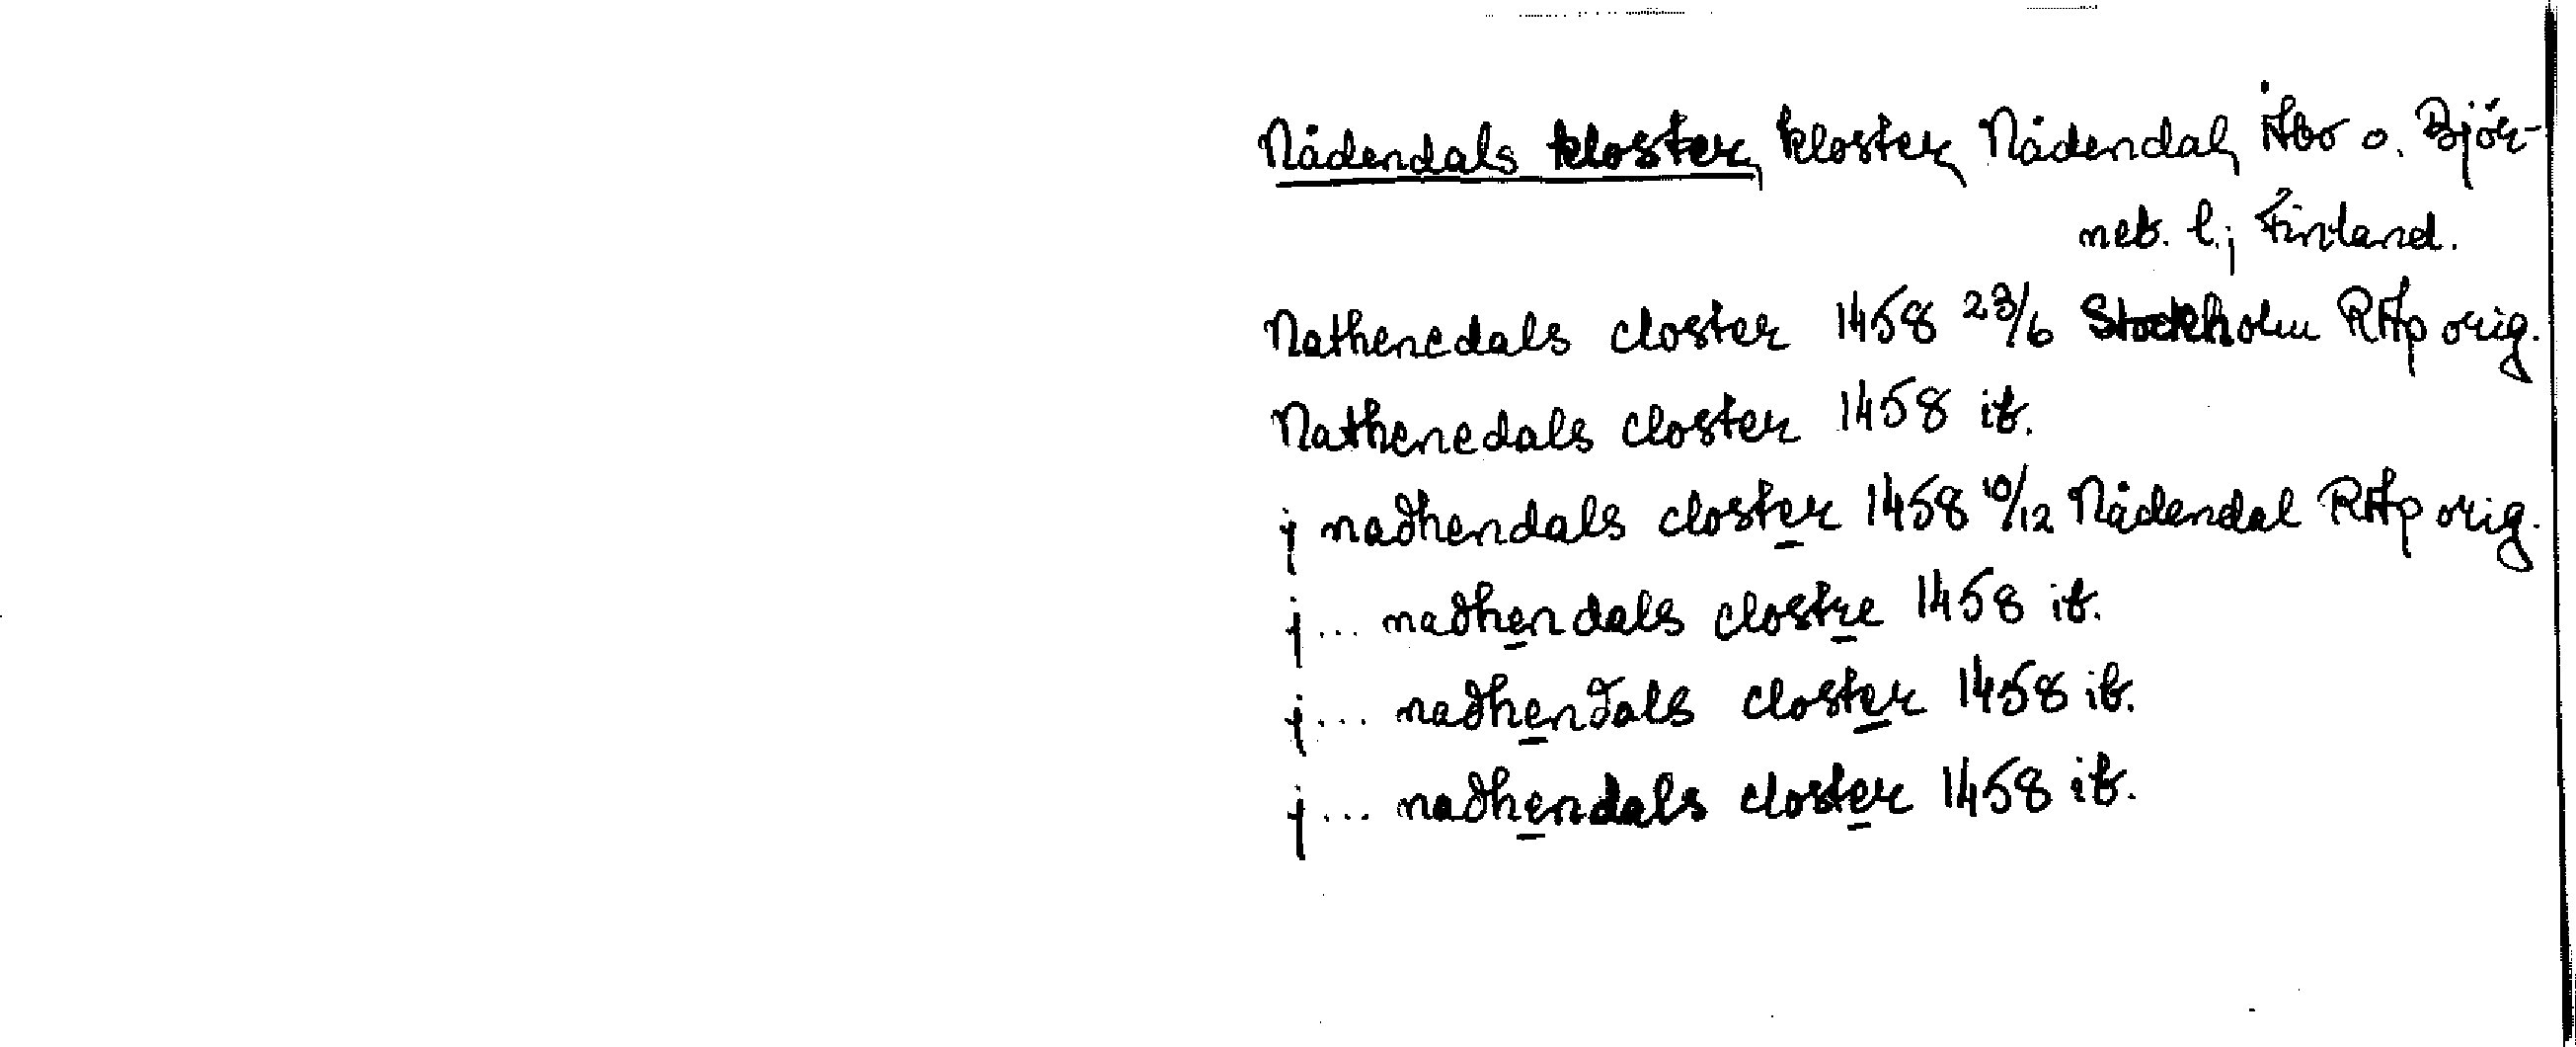 Nådendals kloster, kloster, Nådendal, Åbo o. Björ-
neb. l.; Finland.
Nathenedals closter 1458 23/6 Stockholm RAp orig.
Nathenedals closter 1458 ib.
j nadhendals closter 1458 10/12 Nådendal RAp orig.
j ... nadhendals clostre 1458 ib.
j ... nadhendals closter 1458 ib.
j ... nadhendals closter 1458 ib.